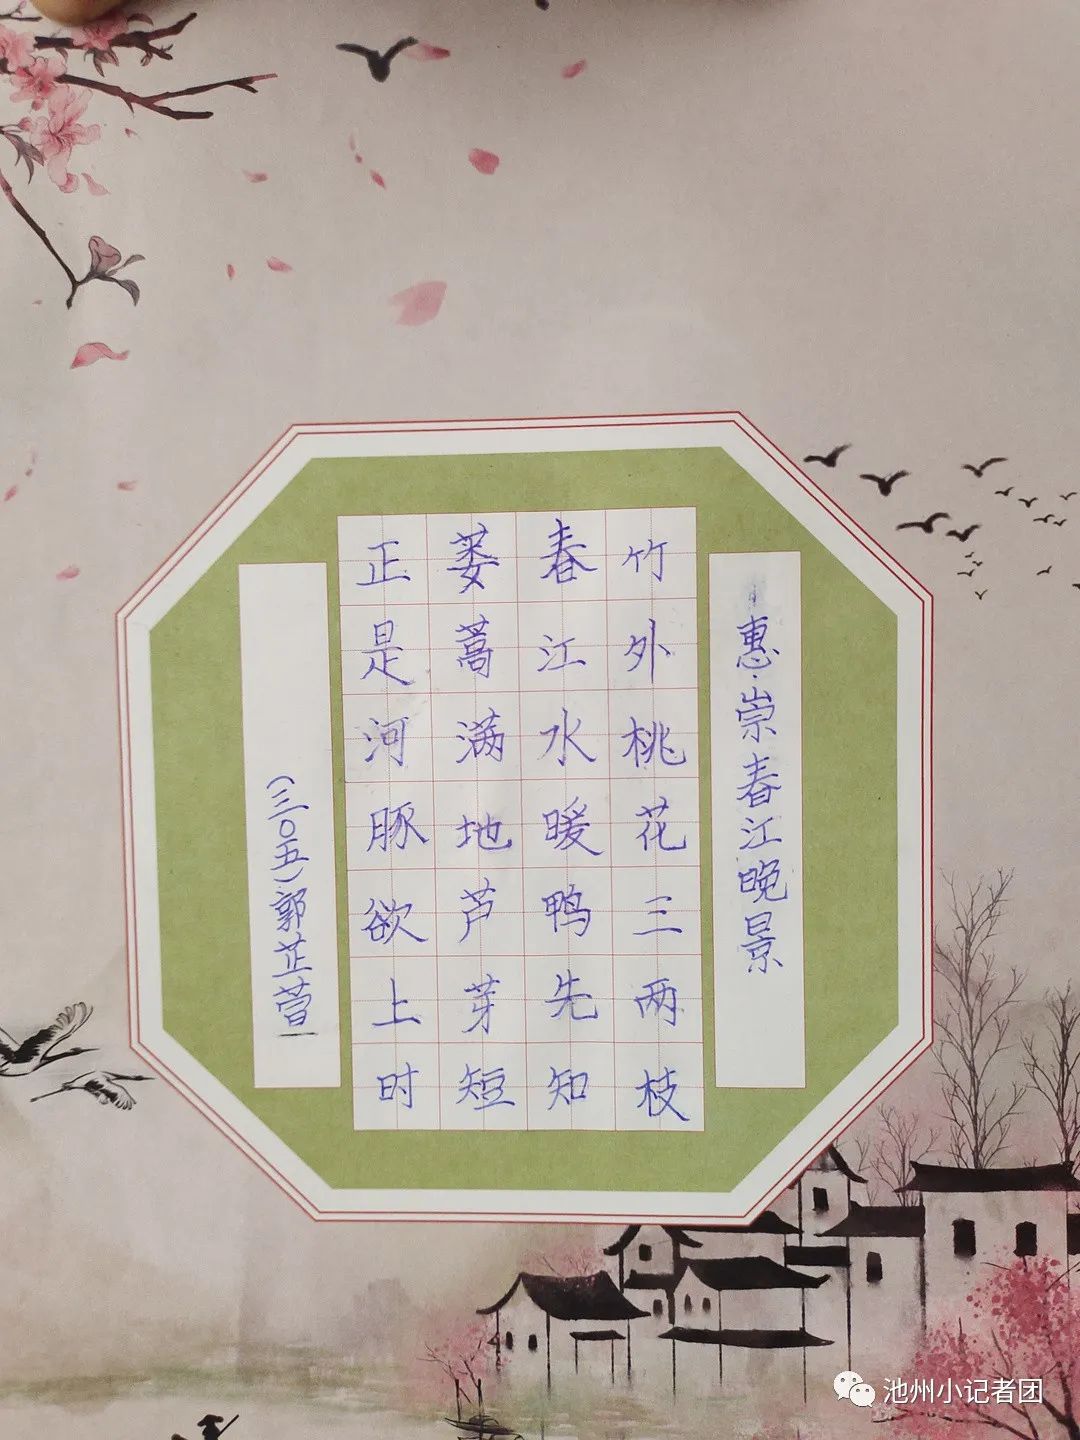 惠崇春江晚景
竹外桃花三两枝
春江水暖鸭先知
蒌蒿满地芦芽短
正是河豚欲上时
(三〇五)郭芷萱
池州小记者团